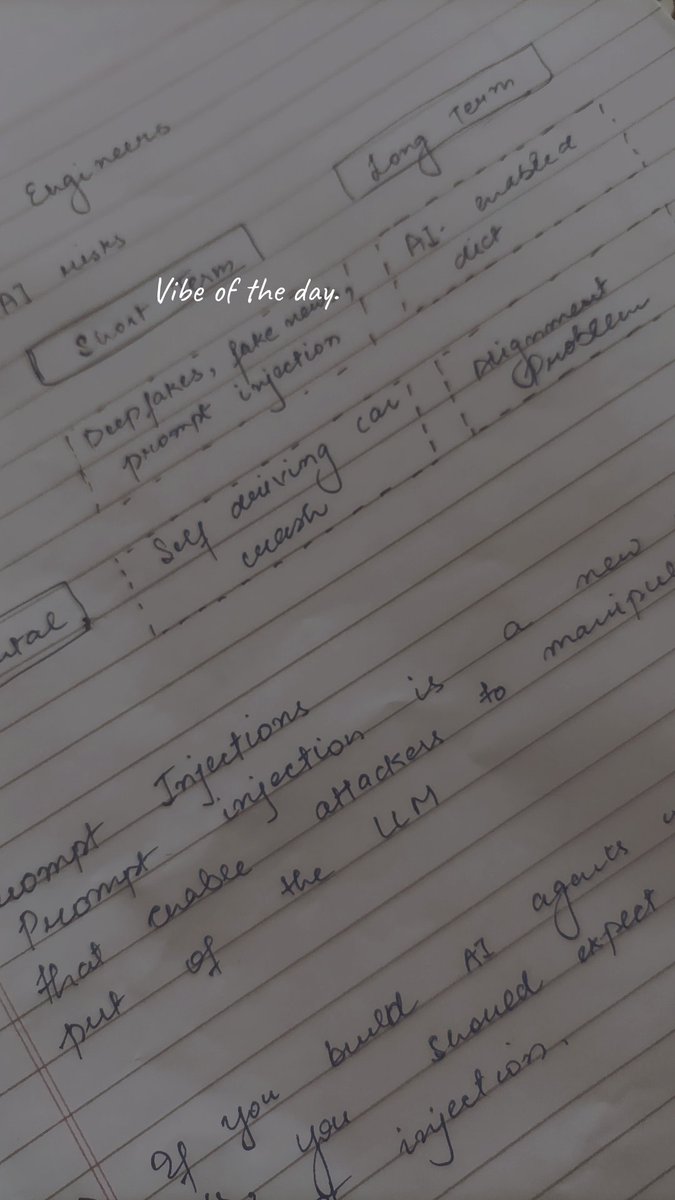 Engineers
Long Term
AI risks
Short Term
Vibe of the day.
Deepfakes, fake news,
prompt injection
AI enabled
dict
Self deriving car
crash
Alignment
Problem
ntal
rompt Injections
Prompt injection is a new
that enable attackers to manipul
put of the LLM
If you build AI agents w
you should expect
injection.